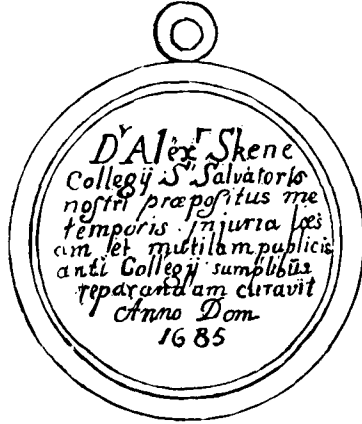 Dʳ Alexʳ Skene
Collegij Sᵗⁱ Salvatoris
noſtri præpoſitus me
temporis Injuria læſ
am et mutilam publicis
dicti Collegij sumptibus
reparandam curavit
Anno Dom
1685